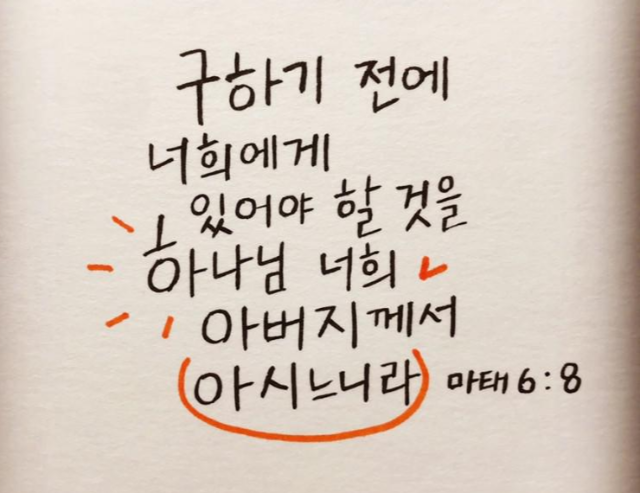 구하기 전에
너희에게
있어야 할 것을
하나님 너희
아버지께서
아시느니라 마태 6:8